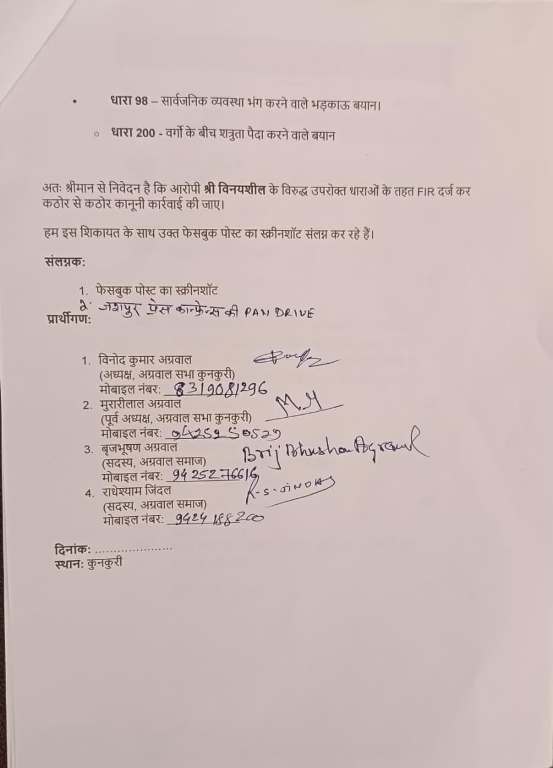 • धारा 98 – सार्वजनिक व्यवस्था भंग करने वाले भड़काऊ बयान।
○ धारा 200 - वर्गो के बीच शत्रुता पैदा करने वाले बयान
अतः श्रीमान से निवेदन है कि आरोपी श्री विनयशील के विरुद्ध उपरोक्त धाराओं के तहत FIR दर्ज कर
कठोर से कठोर कानूनी कार्रवाई की जाए।
हम इस शिकायत के साथ उक्त फेसबुक पोस्ट का स्क्रीनशॉट संलग्न कर रहे हैं।
संलग्नक:
1. फेसबुक पोस्ट का स्क्रीनशॉट
2. जशपुर प्रेस कान्फ्रेन्स की PAN DRIVE
प्रार्थीगण:
1. विनोद कुमार अग्रवाल
(अध्यक्ष, अग्रवाल सभा कुनकुरी)
मोबाइल नंबर: 8319081296
2. मुरारीलाल अग्रवाल
(पूर्व अध्यक्ष, अग्रवाल सभा कुनकुरी)
मोबाइल नंबर: 9425250529
3. बृजभूषण अग्रवाल Brij Bhushan Agrawal
(सदस्य, अग्रवाल समाज)
मोबाइल नंबर: 9425276616
4. राधेश्याम जिंदल R-S-JINDAL
(सदस्य, अग्रवाल समाज)
मोबाइल नंबर: 9424188200
दिनांक: ......................
स्थान: कुनकुरी